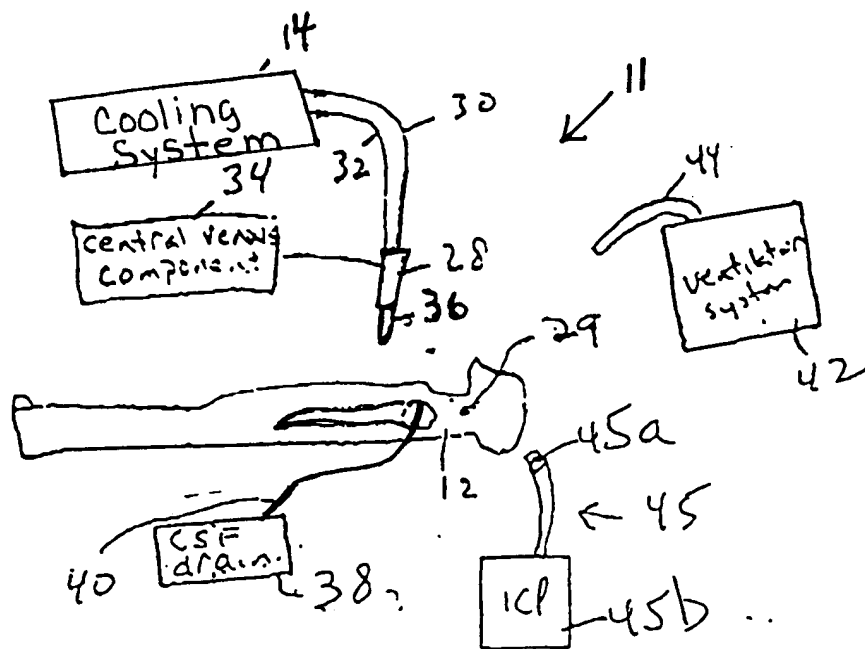 14
Cooling
System
30
32
11
34
central venous
component
28
36
44
ventilation
system
42
29
12
45a
45
CSF
drain
40
38
ICP
45b